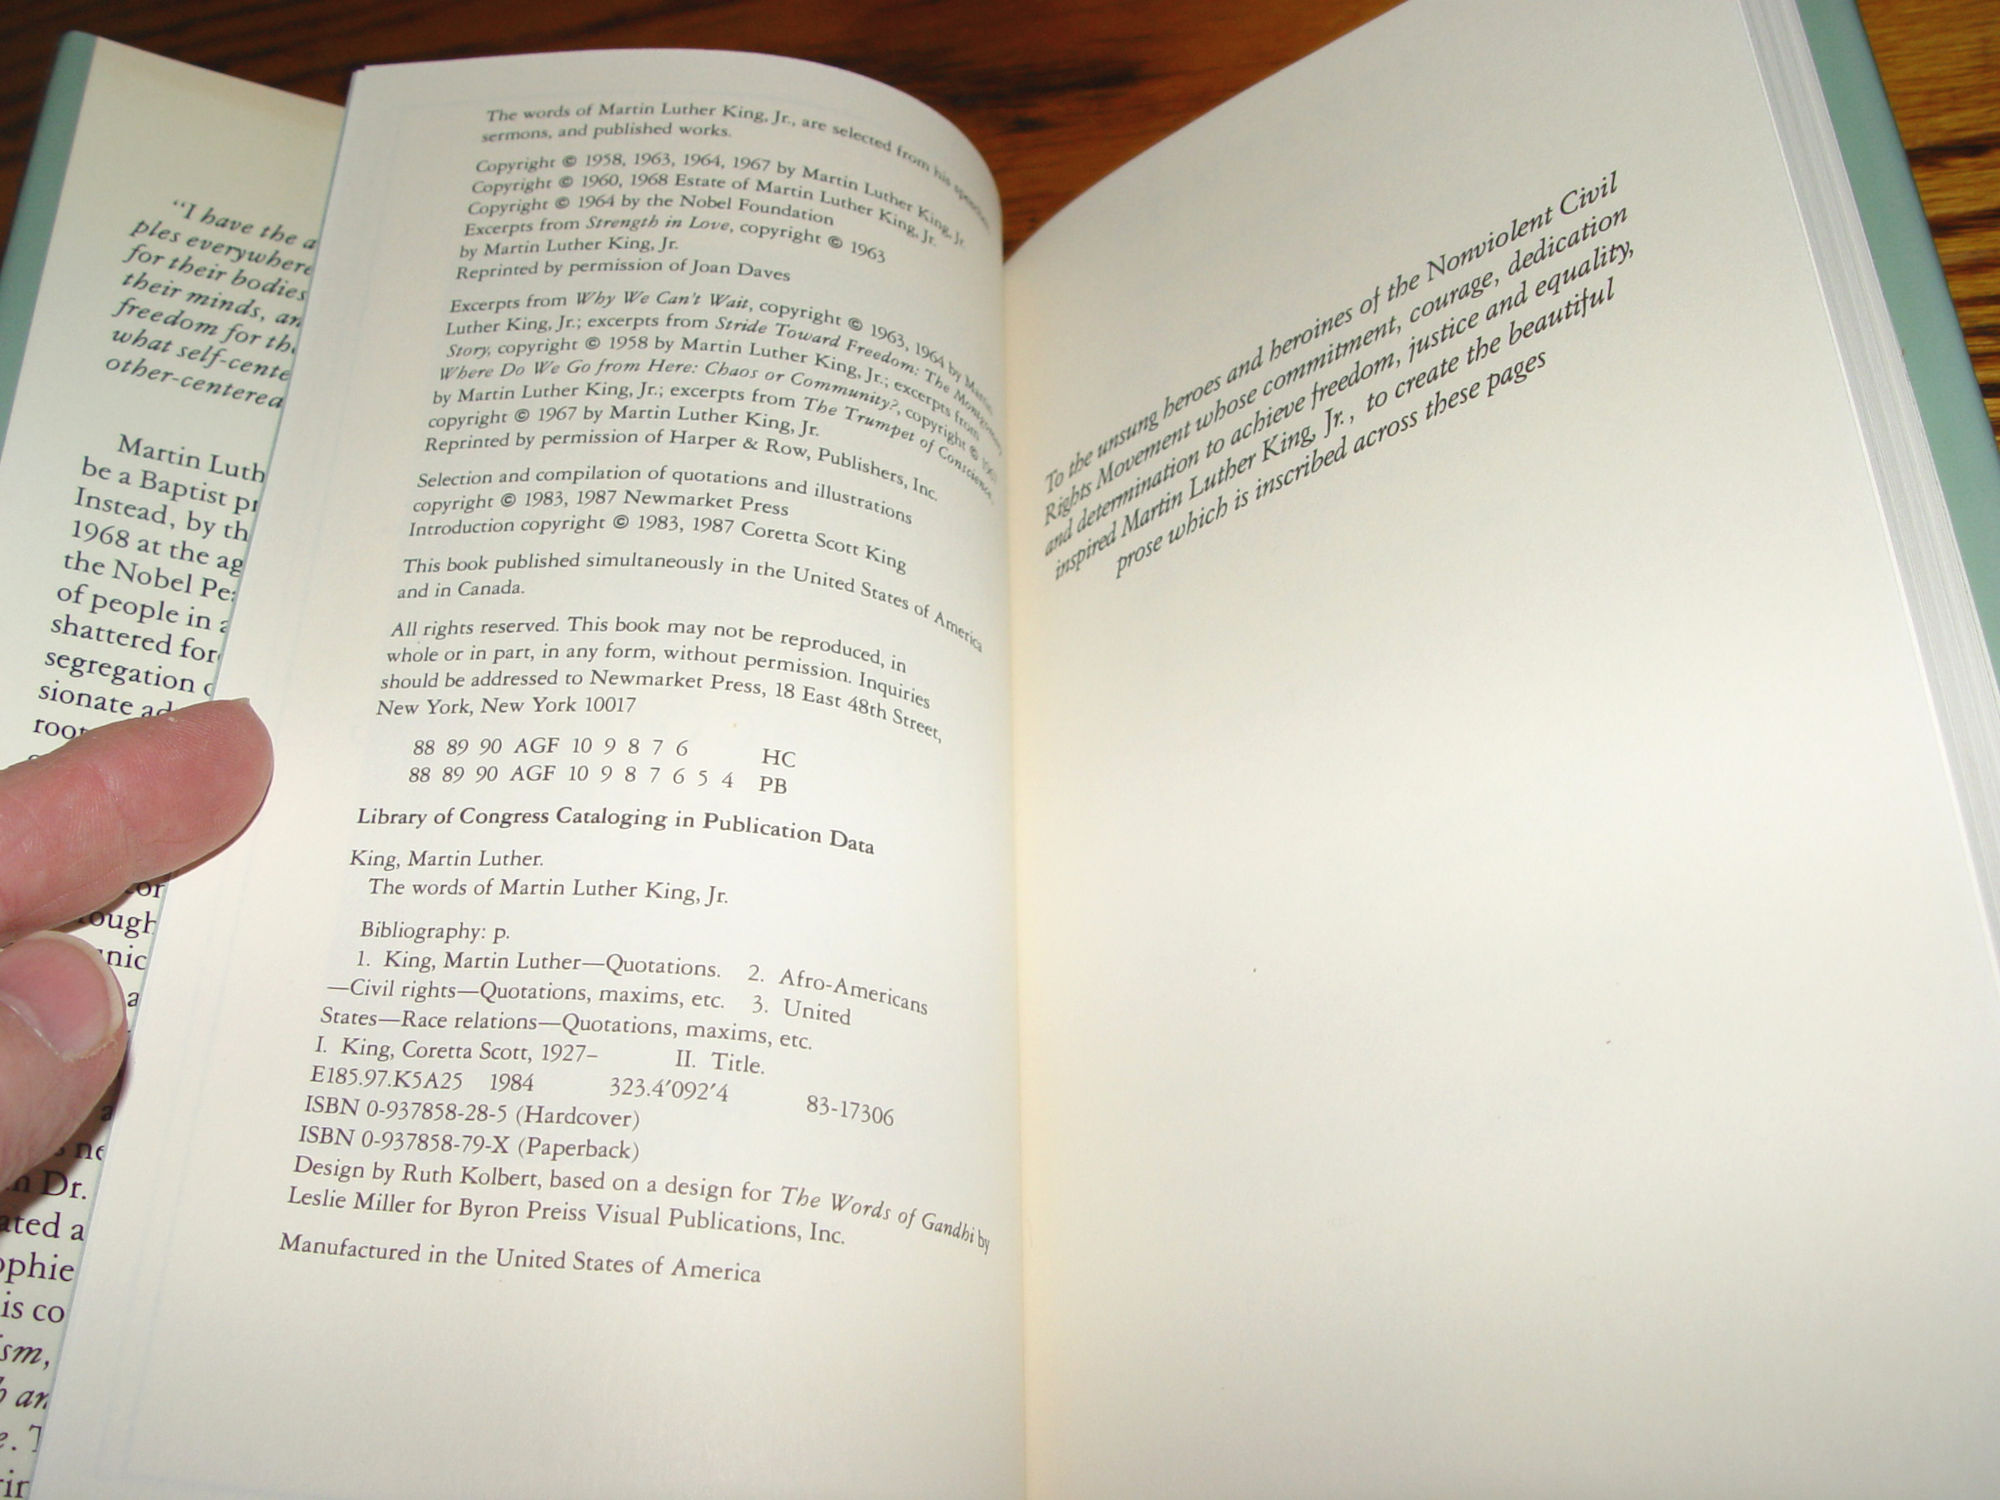 "I have the a
ples everywhere
for their bodies
their minds, an
freedom for the
what self-cente
other-centered
Martin Luth
be a Baptist pr
Instead, by th
1968 at the ag
the Nobel Pea
of people in a
shattered for
segregation o
sionate ad
root
or
ough
nic
a
a
s ne
n Dr.
ated a
ophie
is co
ism,
b an
e. T
rin
The words of Martin Luther King, Jr., are selected from his speeches,
sermons, and published works.
Copyright © 1958, 1963, 1964, 1967 by Martin Luther King, Jr.
Copyright © 1960, 1968 Estate of Martin Luther King, Jr.
Copyright © 1964 by the Nobel Foundation
Excerpts from Strength in Love, copyright © 1963
by Martin Luther King, Jr.
Reprinted by permission of Joan Daves
Excerpts from Why We Can't Wait, copyright © 1963, 1964 by Martin
Luther King, Jr.; excerpts from Stride Toward Freedom: The Montgomery
Story, copyright © 1958 by Martin Luther King, Jr.; excerpts from
Where Do We Go from Here: Chaos or Community?, copyright © 1967
by Martin Luther King, Jr.; excerpts from The Trumpet of Conscience,
copyright © 1967 by Martin Luther King, Jr.
Reprinted by permission of Harper & Row, Publishers, Inc.
Selection and compilation of quotations and illustrations
copyright © 1983, 1987 Newmarket Press
Introduction copyright © 1983, 1987 Coretta Scott King
This book published simultaneously in the United States of America
and in Canada.
All rights reserved. This book may not be reproduced, in
whole or in part, in any form, without permission. Inquiries
should be addressed to Newmarket Press, 18 East 48th Street,
New York, New York 10017
88 89 90 AGF 10 9 8 7 6 HC
88 89 90 AGF 10 9 8 7 6 5 4 PB
Library of Congress Cataloging in Publication Data
King, Martin Luther.
The words of Martin Luther King, Jr.
Bibliography: p.
1. King, Martin Luther—Quotations. 2. Afro-Americans
—Civil rights—Quotations, maxims, etc. 3. United
States—Race relations—Quotations, maxims, etc.
I. King, Coretta Scott, 1927– II. Title.
E185.97.K5A25 1984 323.4'092'4 83-17306
ISBN 0-937858-28-5 (Hardcover)
ISBN 0-937858-79-X (Paperback)
Design by Ruth Kolbert, based on a design for The Words of Gandhi by
Leslie Miller for Byron Preiss Visual Publications, Inc.
Manufactured in the United States of America
To the unsung heroes and heroines of the Nonviolent Civil
Rights Movement whose commitment, courage, dedication
and determination to achieve freedom, justice and equality,
inspired Martin Luther King, Jr., to create the beautiful
prose which is inscribed across these pages